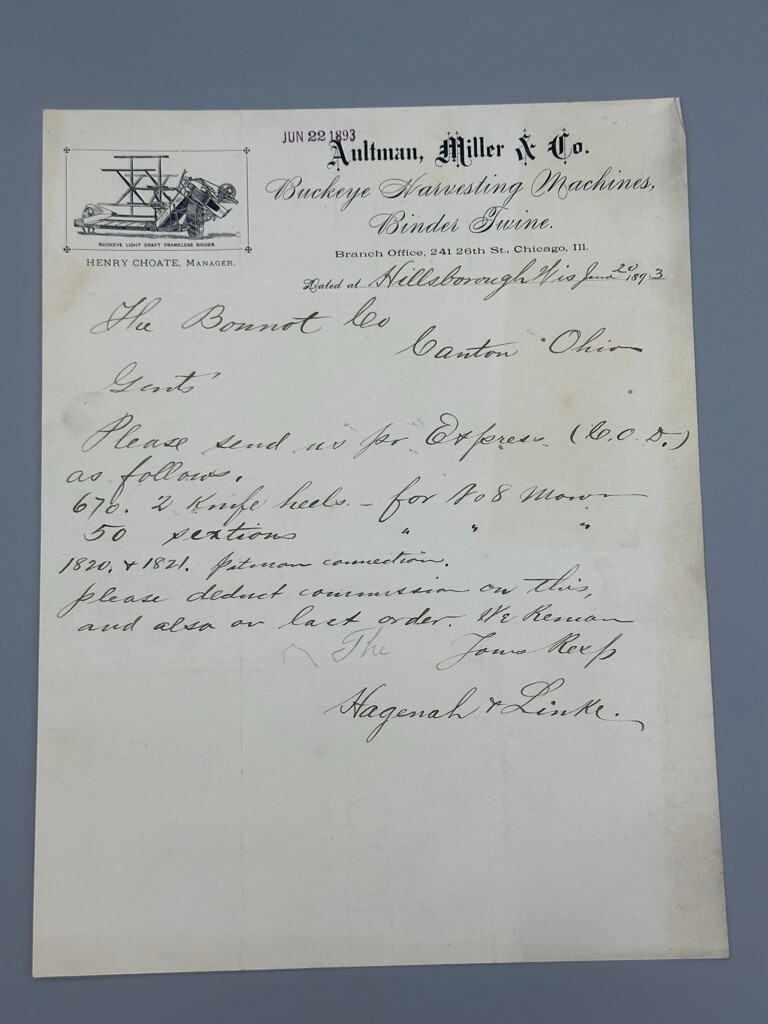 JUN 22 1893
Aultman, Miller & Co.
Buckeye Harvesting Machines,
Binder Twine.
Branch Office, 241 26th St., Chicago, Ill.
BUCKEYE LIGHT DRAFT FRAMELESS BINDER.
HENRY CHOATE, MANAGER.
Dated at Hillsborough Wis June 20 1893
The Bonnot Co
Canton Ohio
Gents
Please send us pr Express (C.O.D.)
as follows.
670. 2 Knife heels - for No 8 Mower
50 sextions " " "
1820. & 1821. pitman connection.
please deduct commission on this,
and also on last order. We Remain
The Yours Resp
Hagenah & Linke.